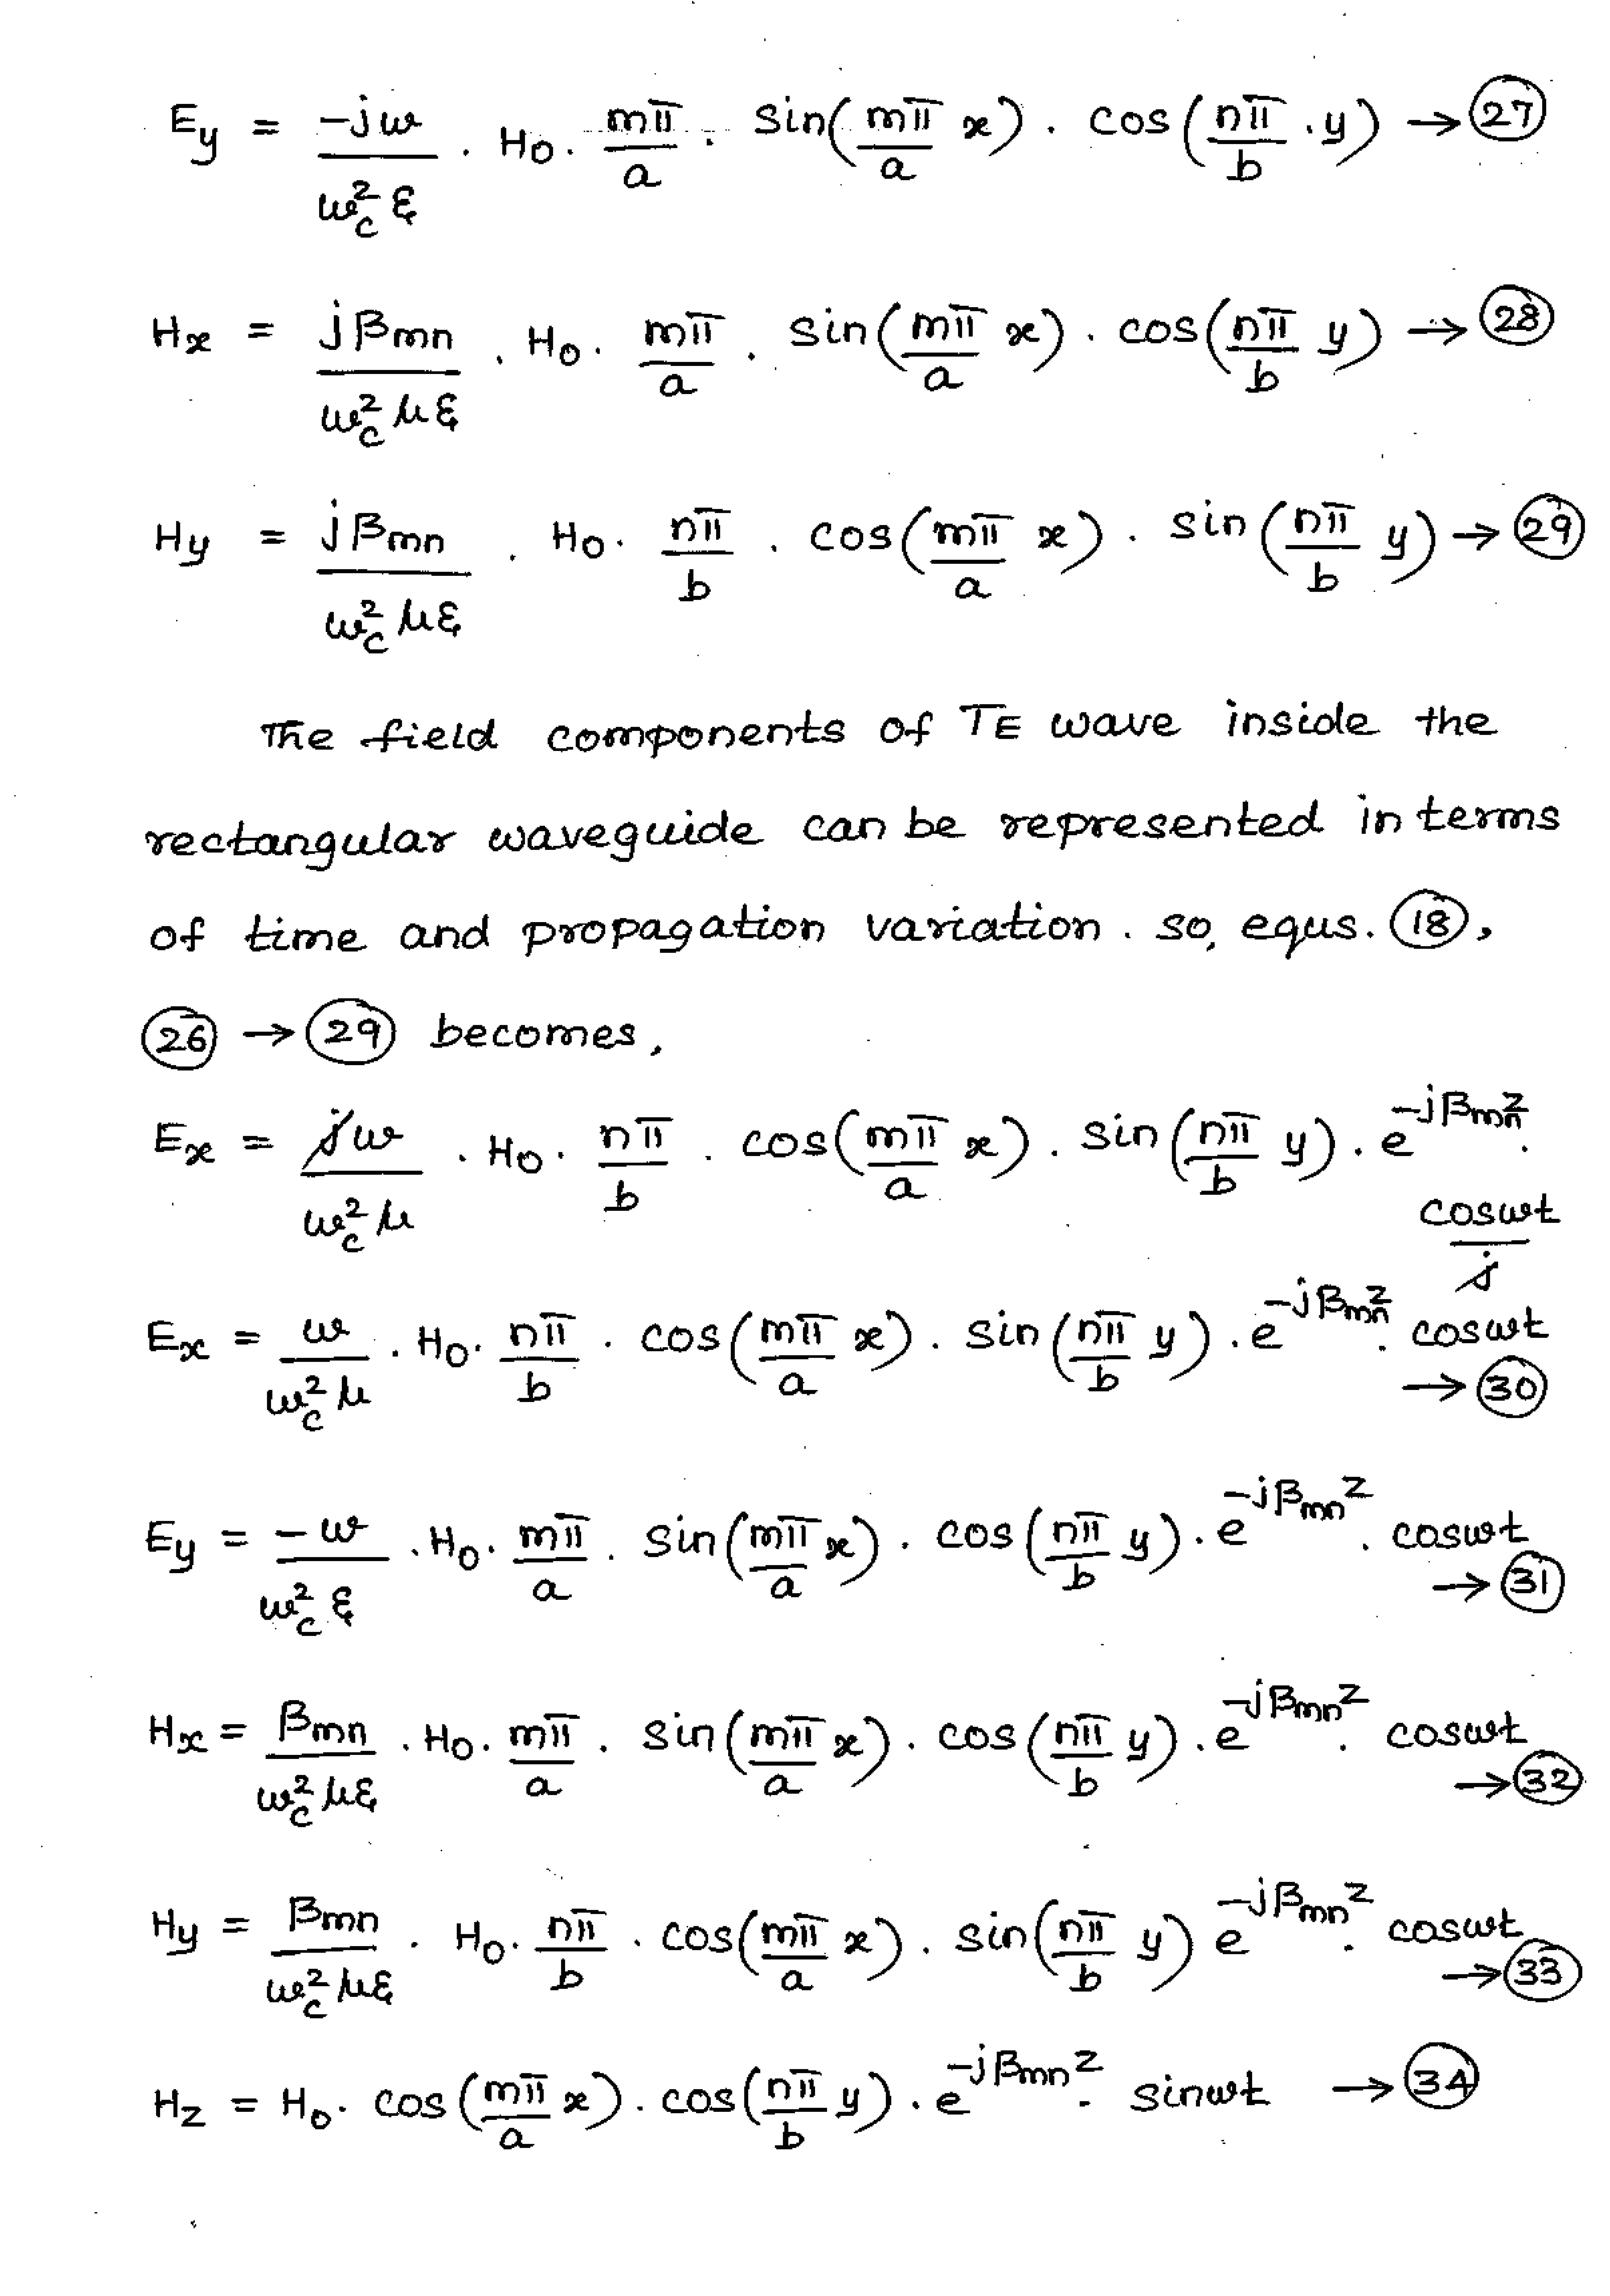 Ey = -jω/ω_c²ε . H₀. mπ/a . sin(mπ/a x) . cos(nπ/b .y) → (27)
Hx = jβmn/ω_c²με . H₀. mπ/a . sin(mπ/a x) . cos(nπ/b y) → (28)
Hy = jβmn/ω_c²με . H₀. nπ/b . cos(mπ/a x) . sin(nπ/b y) → (29)
The field components of TE wave inside the
rectangular waveguide can be represented in terms
of time and propagation variation. so, equs. (18),
(26) → (29) becomes,
Ex = jω/ω_c²μ . H₀. nπ/b . cos(mπ/a x) . sin(nπ/b y) . e^(-jβmn z) . cosωt/j
Ex = ω/ω_c²μ . H₀. nπ/b . cos(mπ/a x) . sin(nπ/b y) . e^(-jβmn z) . cosωt → (30)
Ey = -ω/ω_c²ε . H₀. mπ/a . sin(mπ/a x) . cos(nπ/b y) . e^(-jβmn z) . cosωt → (31)
Hx = βmn/ω_c²με . H₀. mπ/a . sin(mπ/a x) . cos(nπ/b y) . e^(-jβmn z) . cosωt → (32)
Hy = βmn/ω_c²με . H₀. nπ/b . cos(mπ/a x) . sin(nπ/b y) e^(-jβmn z) . cosωt → (33)
Hz = H₀. cos(mπ/a x) . cos(nπ/b y) . e^(-jβmn z) . sinωt → (34)